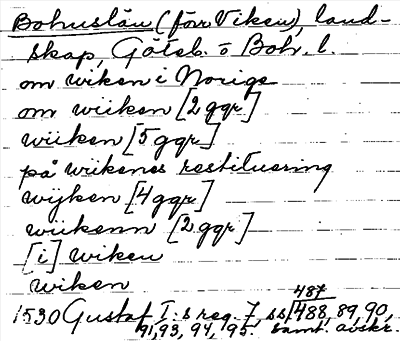 Bohuslän (förr Viken), land-
skap, Göteb. o Boh. l.
om wiken i Norige
om wiiken [2 ggr]
wiiken [5 ggr]
på wiikenes restituering
wijken [4 ggr]
wiikenn [2 ggr]
[i] wiken
wiken
1530 Gustaf I:s reg. 7, ss. 487, 488, 89, 90,
91, 93, 94, 95. Samt. avskr.